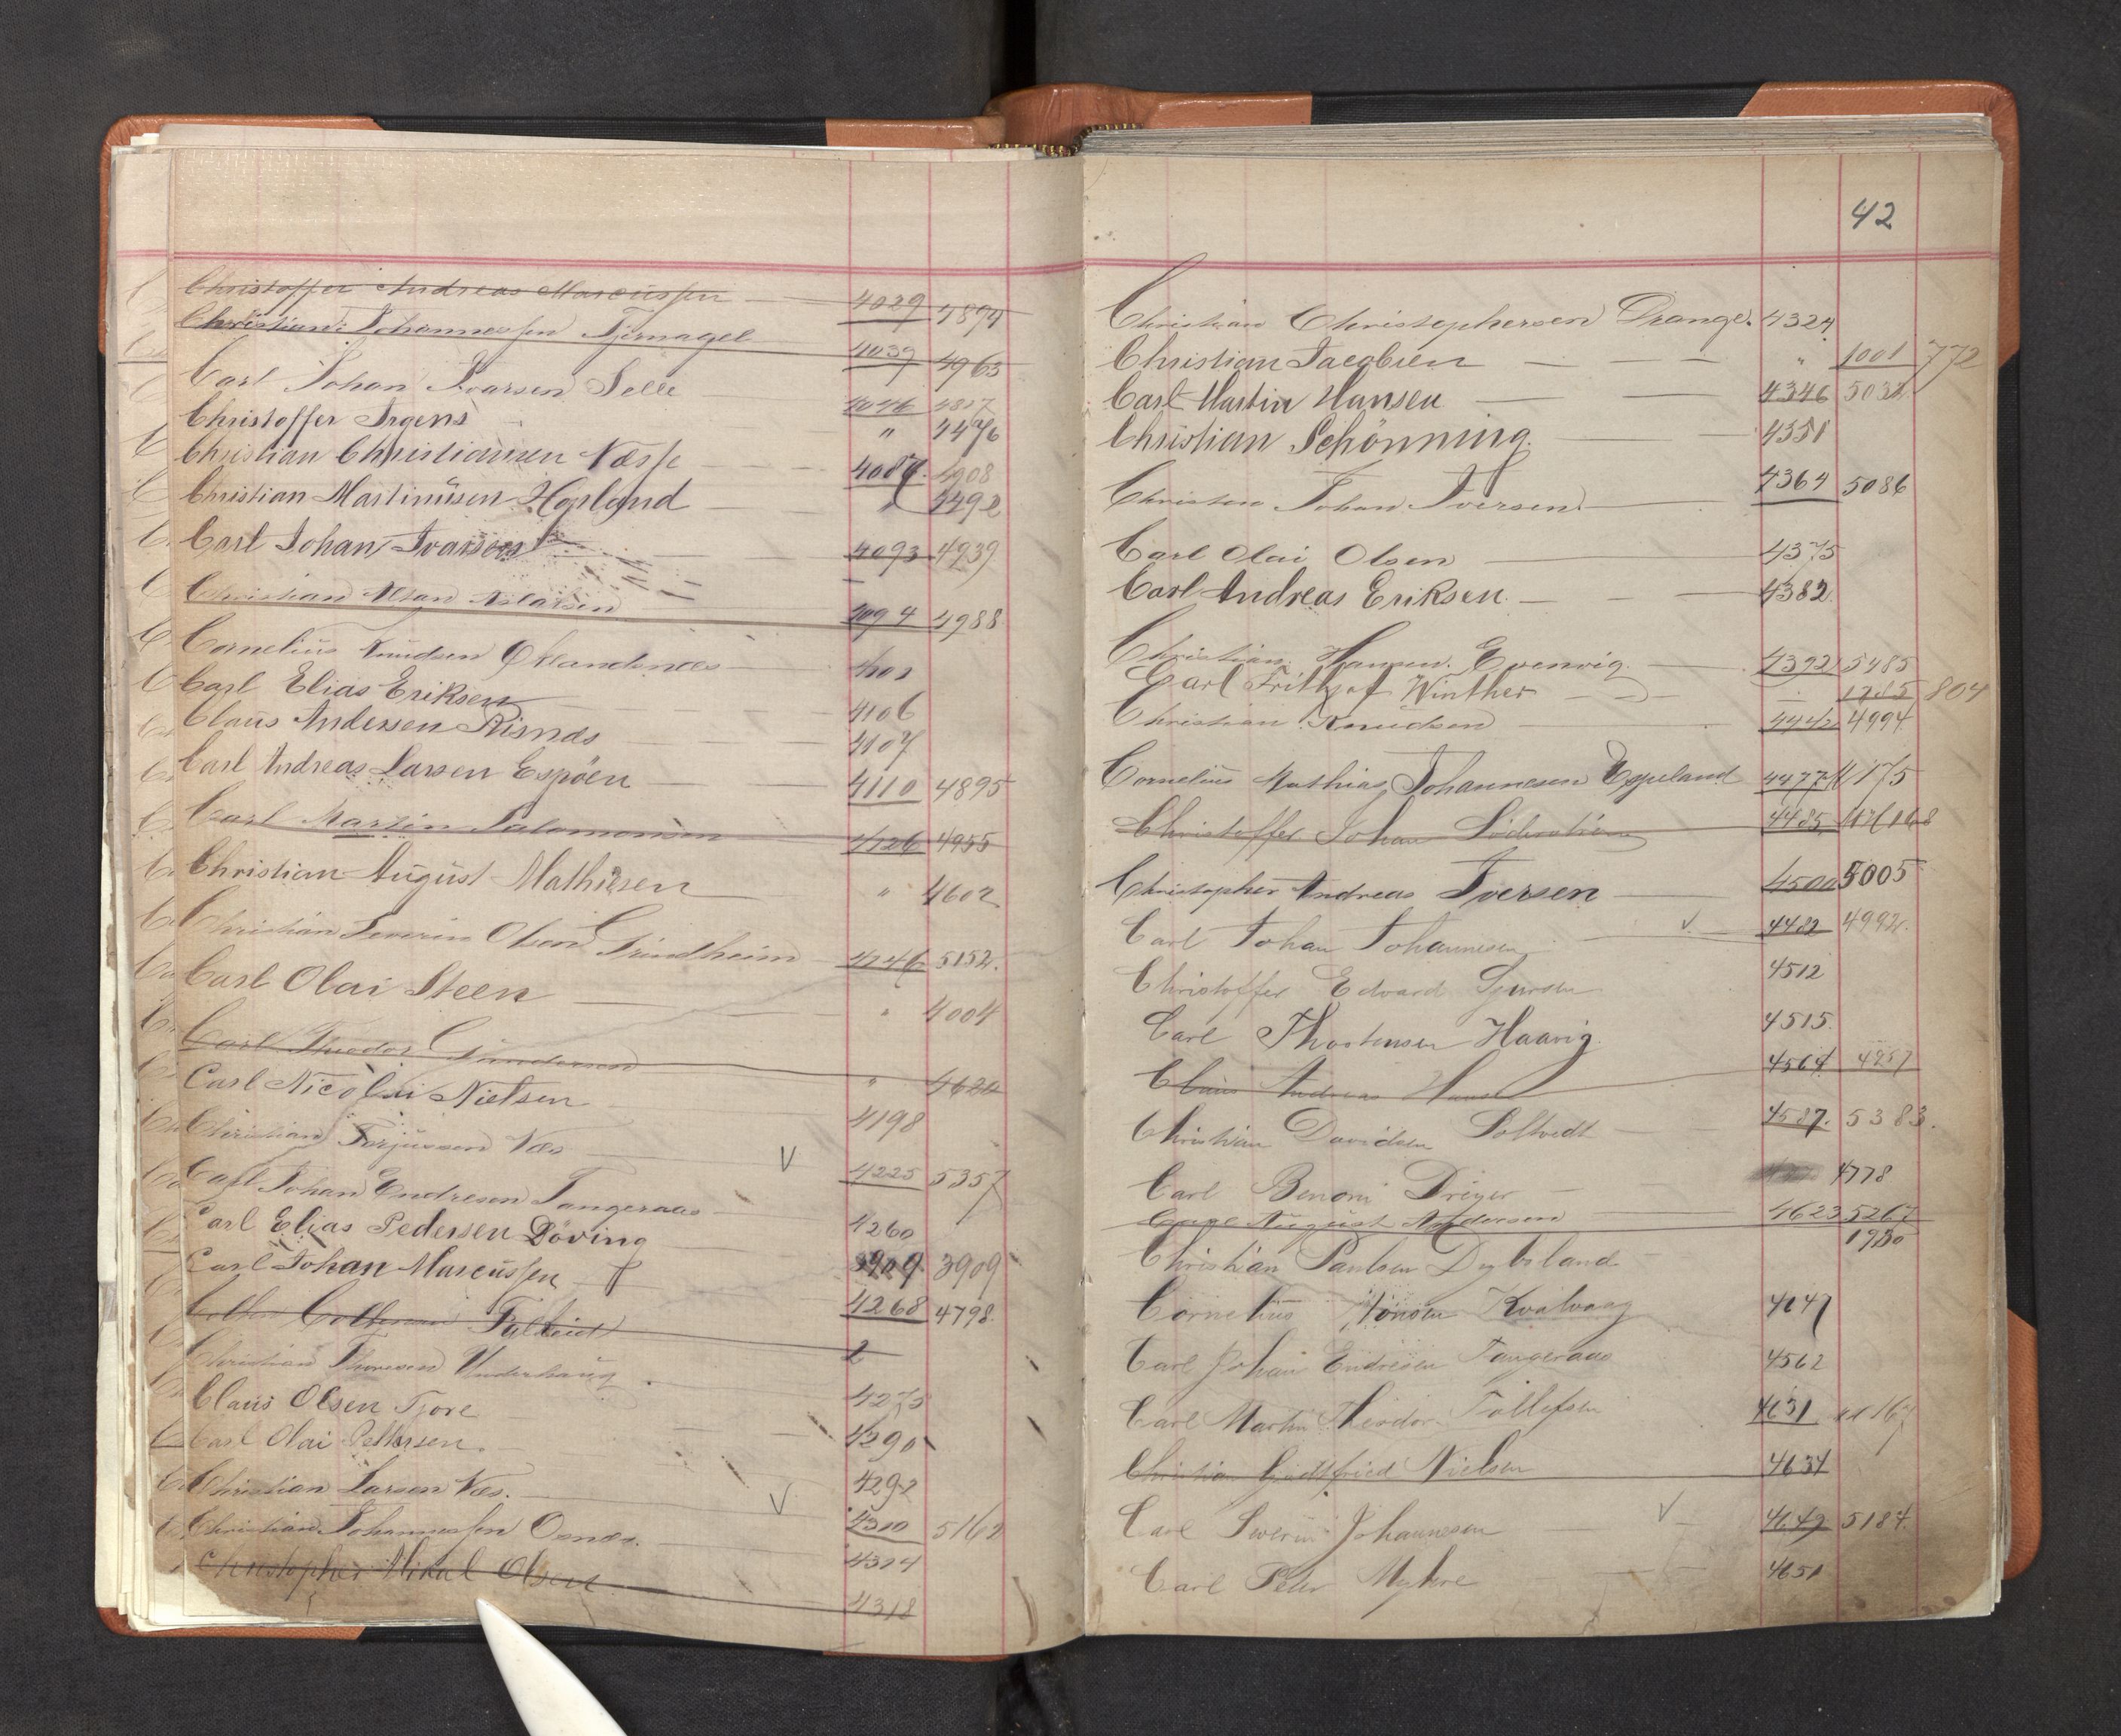 Christoffer Andreas Marcussen 4029 4874
Christian Johannessen Tjernagel 4039 4963
Carl Johan Ivarsen Selle 4046 4827
Christoffer Irgens " 4476
Christian Christiansen Næsse 4087. 4908
Christian Martinusen Hopland " 4492
Carl Johan Ivarsen 4093 4939
Christian 4094 4988
Cornelius Knudsen
Carl Elias Eriksen 4106
Claus Andersen Risnæs 4107
Carl Andreas Larsen Espöen 4110 4895
Carl Martin Salomonsen 4126 4955
Christian August Mathisen " 4602
Christian Severin Olsen Grindheim 4146 5152.
Carl Olai Steen " 4004
Carl Theodor Gundersen " 4624
Carl Nicolai Nielsen 4198
Christian Torjussen Næs V 4225 5357
Carl Johan Endresen Tangeraas 4260
Carl Elias Pedersen Döving
Carl Johan Marcussen 3909 3909
4268 4798
Christian Thoresen Underhaug 4275
Claus Olsen Tjore 4290
Carl Olai Pettersen. 4292
Christian Larsen Næs. V 4310 5162
Christian Johannessen Osnes. 4314
Christopher Mikal Olsen 4318
42
Christian Christophersen Drange. 4324
Christian Jacobsen " 1001 772
Carl Martin Hansen 4346 5034
Christian Schönning. 4351
Christen Johan Iversen 4364 5086
Carl Olai Olsen 4375
Carl Andreas Eriksen. 4382.
Christian Hansen Evenvig. 4392 5485
Carl Frithjof Winther 1285 804
Christian Knudsen 4442 4994
Cornelius Mathias Johannesen Espeland 4477 11175
Christoffer Johan Söderström 4485
Christopher Andreas Iversen 4500 5005
Carl Johan Johannesen V. 4482 4992.
Christoffer Edvard Sjursen 4512
Carl Thorstensen Haavig. 4515.
Claus Andreas 4564 4957
Christian Davidsen Soltvedt 4587. 5383.
Carl Benoni Dreyer 4778
Carl August Andersen 4623 5267
Christian Paulsen Dybsland 1980
Cornelius Monsen Kvalvaag 4647
Carl Johan Endresen Tangeraas 4562
Carl Martin Theodor Tollefsen 4631
Christian Gottfried Nielsen 4634
Carl Severin Johannesen V 4649 5184
Carl Peter Myhre 4651